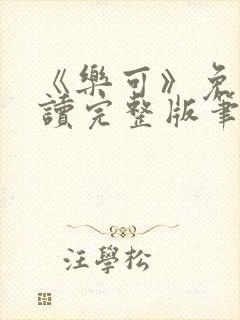 《樂可》免
讀完整版筆
汪學松